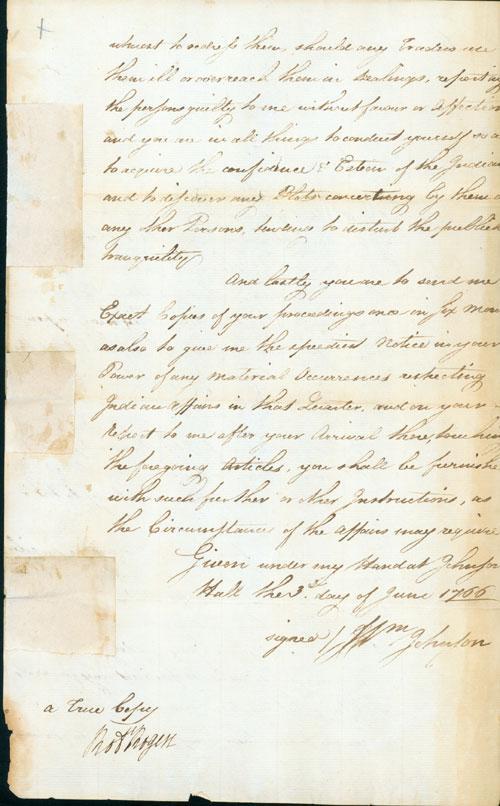 utmost to redress them, should any Traders use
them ill or overreach them in Dealings, reporting
the persons guilty to me without favour or affection
and you are in all things to conduct yourself so as
to acquire the confidence & Esteem of the Indians
and to discover any Plots concerting by them or
any other Persons, to disturb the publick
tranquility
And lastly you are to send me
Exact Copies of your proceedings once in Six Mon
as also to give me the speediest Notice in your
Power of any material Occurrences respecting
Indian affairs in that Quarter, and on your
report to me after your Arrival there, touching
the foregoing Articles, you shall be furnishe
with such further or other Instructions, as
the Circumstances of the affairs may require
Given under my Hand at Johnson
Hall the 3d. day of June 1766
signed / Wm Johnson
a True Copy
Robt Rogers